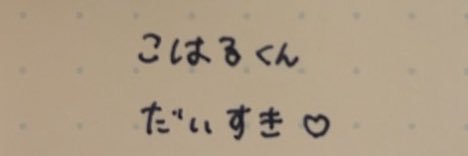 こはるくん
だいすき♡